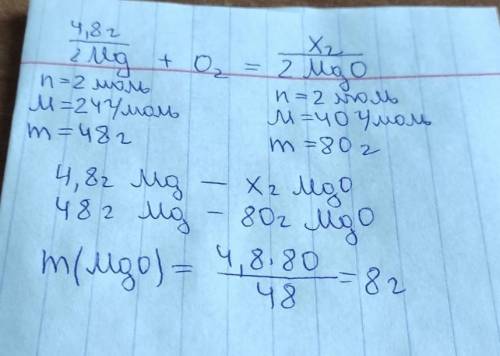 4,8г хг
2Mg + O₂ = 2MgO
n=2 моль n=2 моль
M=24г/моль M=40г/моль
m=48г m=80г
4,8г Mg — хг MgO
48г Mg — 80г MgO
m(MgO) = 4,8·80/48 = 8г